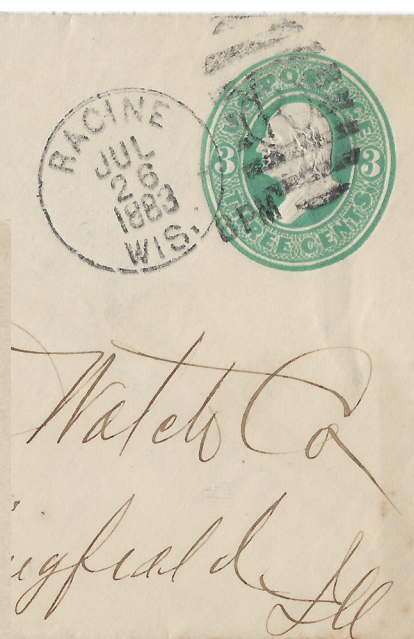 RACINE
JUL
26
1883
WIS.
U.S. POSTAGE
3 3
THREE CENTS
Watch Co
ingfield Ill